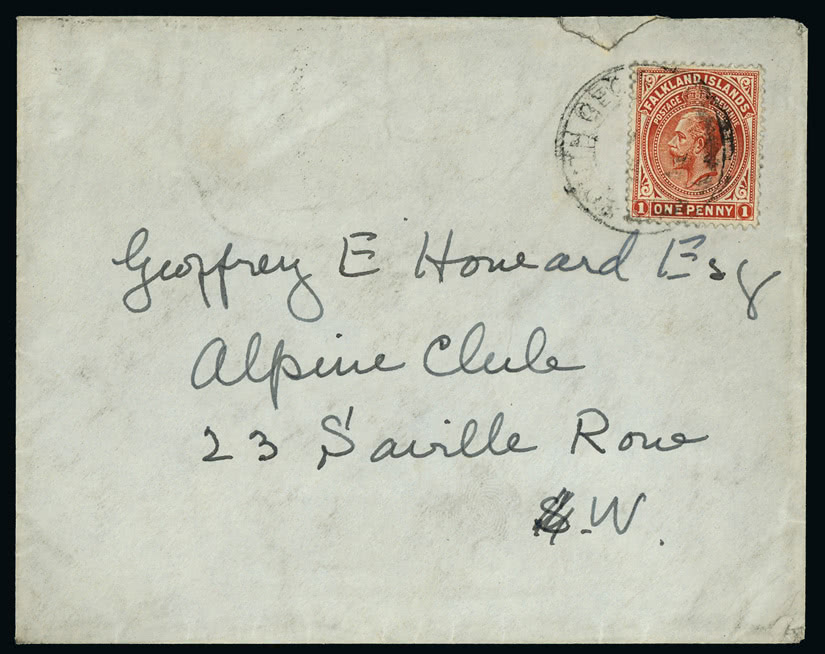 FALKLAND ISLANDS
POSTAGE REVENUE
1 ONE PENNY 1
Geoffrey E Howard Esq
Alpine Club
23 Saville Row
W.